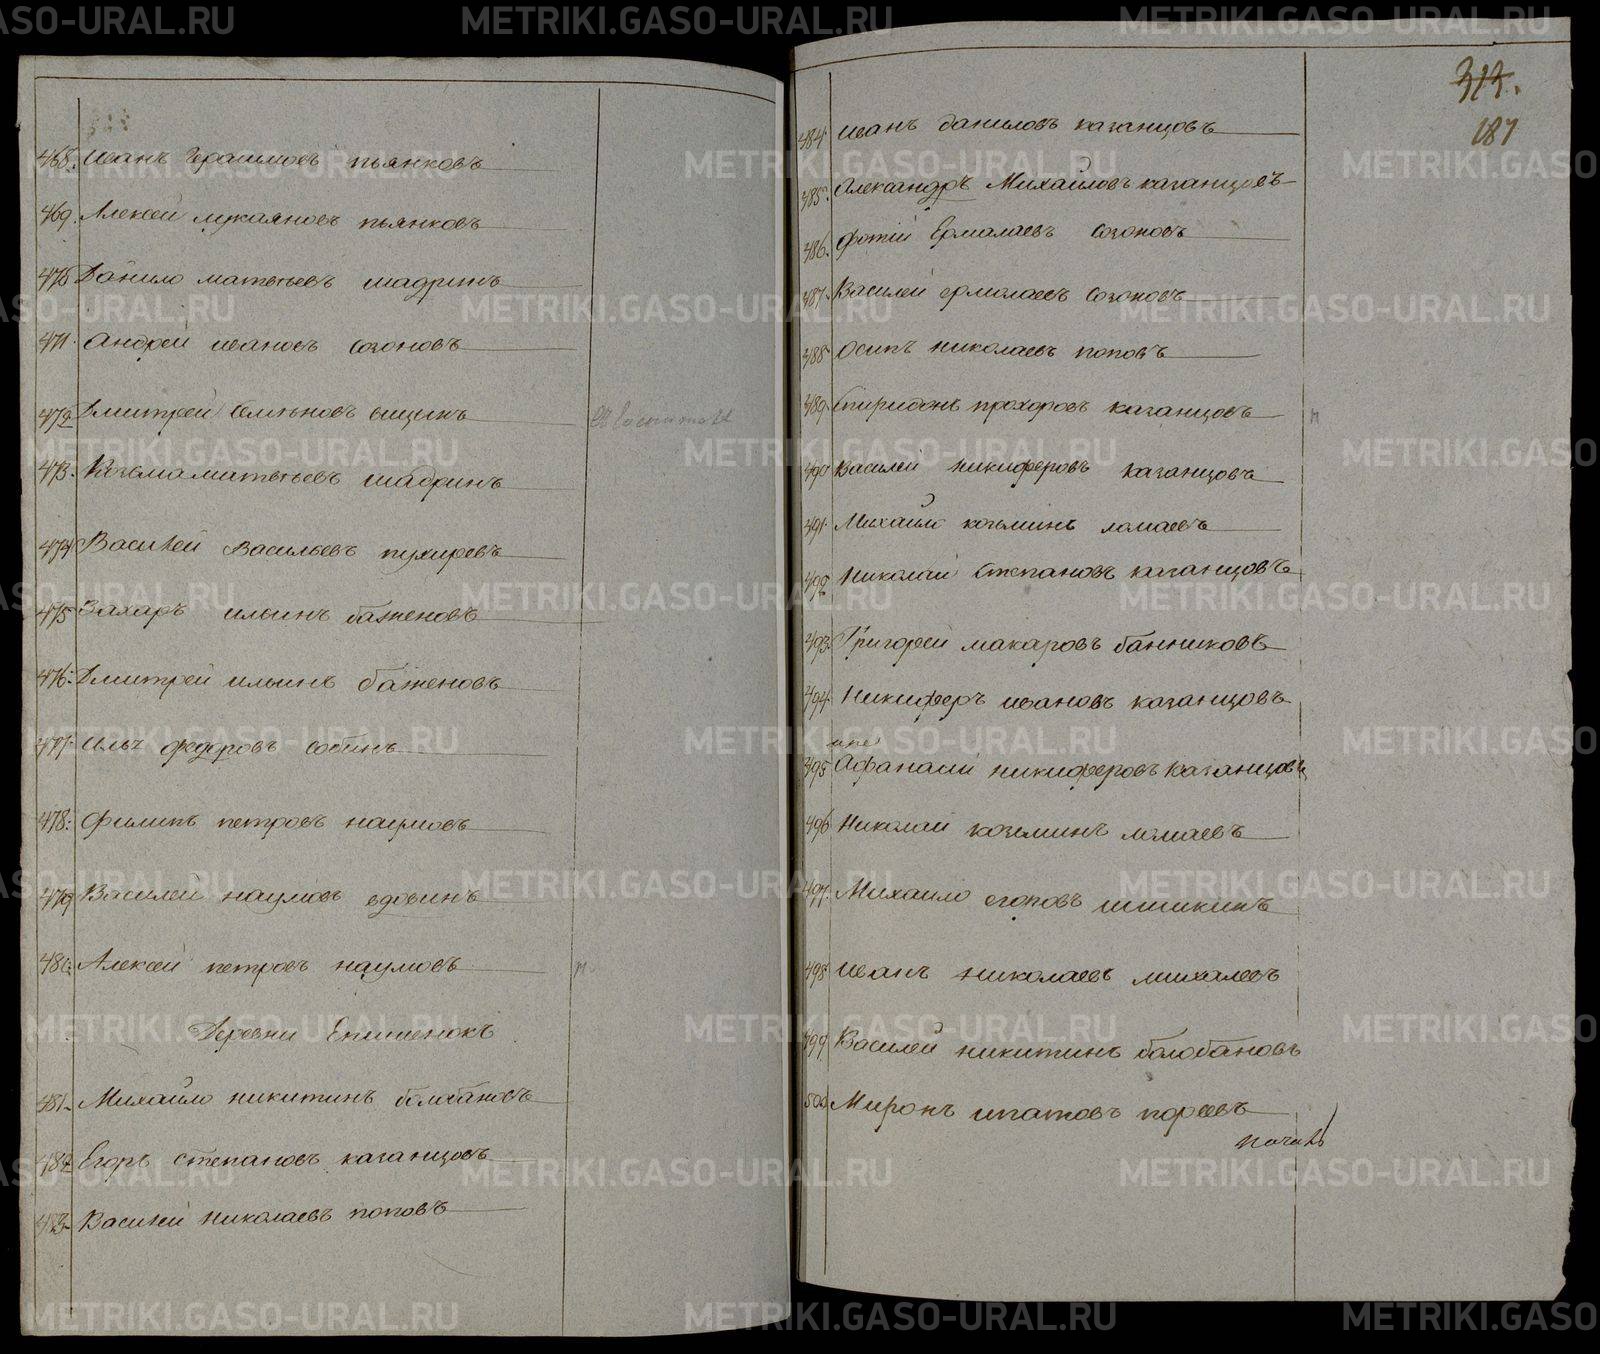 468. Иванъ Герасимовъ пьянковъ
469. Алексей лукаяновъ пьянковъ
470 Данило матвѣевъ шадринъ
471. Андрей ивановъ созоновъ
472 Дмитрей Семѣновъ ощупъ
473. Козьма матвѣевъ шадринъ
474 Василей Васильевъ пухиревъ
475 Захаръ ильинъ баженовъ
476. Дмитрей ильинъ баженовъ
477. Илья федоровъ собинъ
478. Филипъ петровъ наумовъ
479 Василей наумовъ вдовинъ
480. Алексей петровъ наумовъ
Деревни Епишенокъ
481. Михайло никитинъ болобановъ
482 Егоръ степановъ казанцовъ
483. Василей Николаевъ поповъ
313.
187
484 Иванъ даниловъ казанцовъ
485. Александръ Михайловъ казанцовъ
486. Фотий Ермалаевъ Созоновъ
487. Василей ермолаевъ Созоновъ
488. Осипъ николаевъ поповъ
489. Спиридонъ прохоровъ казанцовъ
490 Василей никиферовъ казанцовъ
491. Михайло козьминъ ломаевъ
492 Николай Степановъ казанцовъ
493. Григорей макаровъ банниковъ
494. Никиферъ ивановъ казанцовъ
495 Афанасий никиферовъ казанцовъ
496 Николай козьминъ ломаевъ
497. Михайло егоровъ шишкинъ
498 Иванъ николаевъ михалевъ
499 Василей никитинъ болобановъ
500 Миронъ ипатовъ
METRIKI.GASO-URAL.RU